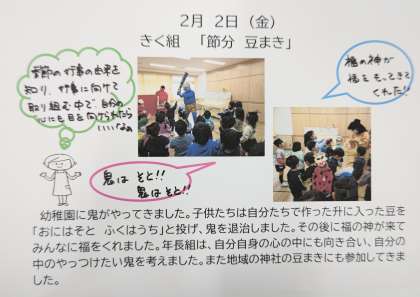 2月 2日（金）
きく組 「節分 豆まき」
季節の行事の由来を
知り、行事に向けて
取り組む中で、自分の
心にも目を向けられたら
いいなぁ
福の神が
福をもってきて
くれた!!
鬼は そと!!
鬼は そと!!
幼稚園に鬼がやってきました。子供たちは自分たちで作った升に入った豆を
「おにはそと ふくはうち」と投げ、鬼を退治しました。その後に福の神が来て
みんなに福をくれました。年長組は、自分自身の心の中にも向き合い、自分の
中のやっつけたい鬼を考えました。また地域の神社の豆まきにも参加してきま
した。